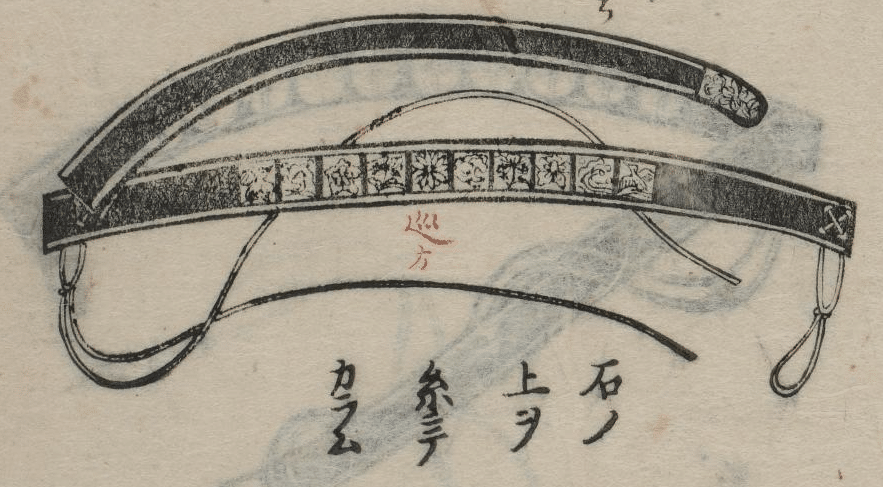 巡方
石ノ
上ヲ
糸ニテ
カラム